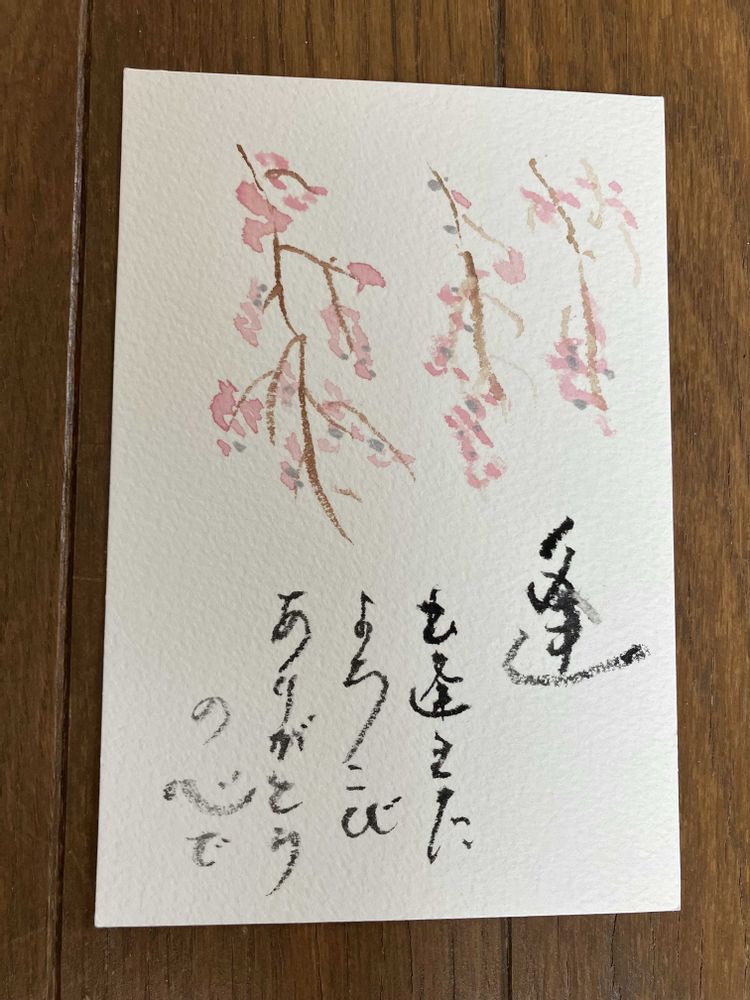 逢
出逢えた
よろこび
ありがとう
の心で